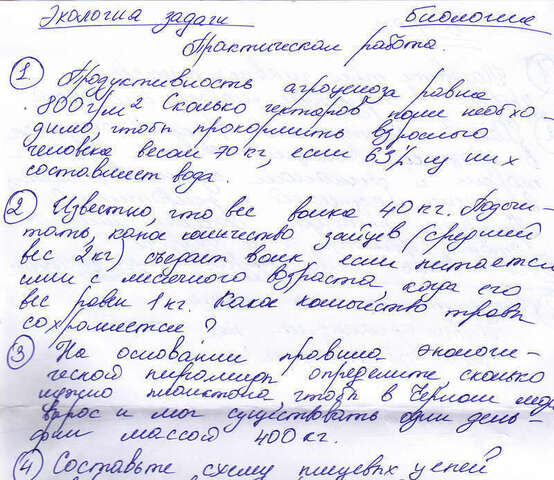 Экология задачи Биология
Практическая работа.
1 Продуктивность агроценоза равна
800 г/м2 Сколько гектаров поля необхо-
димо, чтоб прокормить взрослого
человека весом 70 кг, если 63% из них
составляет вода.
2 Известно, что вес волка 40 кг. Подсчи-
тать, какое количество зайцев (средний
вес 2 кг) съедает волк если питается
ими с месячного возраста, когда его
вес равен 1 кг. Какое количество травы
сохраняется?
3 На основании правила экологи-
ческой пирамиды определите, сколько
нужно планктона, чтоб в Черном море
вырос и мог существовать один дель-
фин массой 400 кг.
4 Составьте схему пищевых цепей